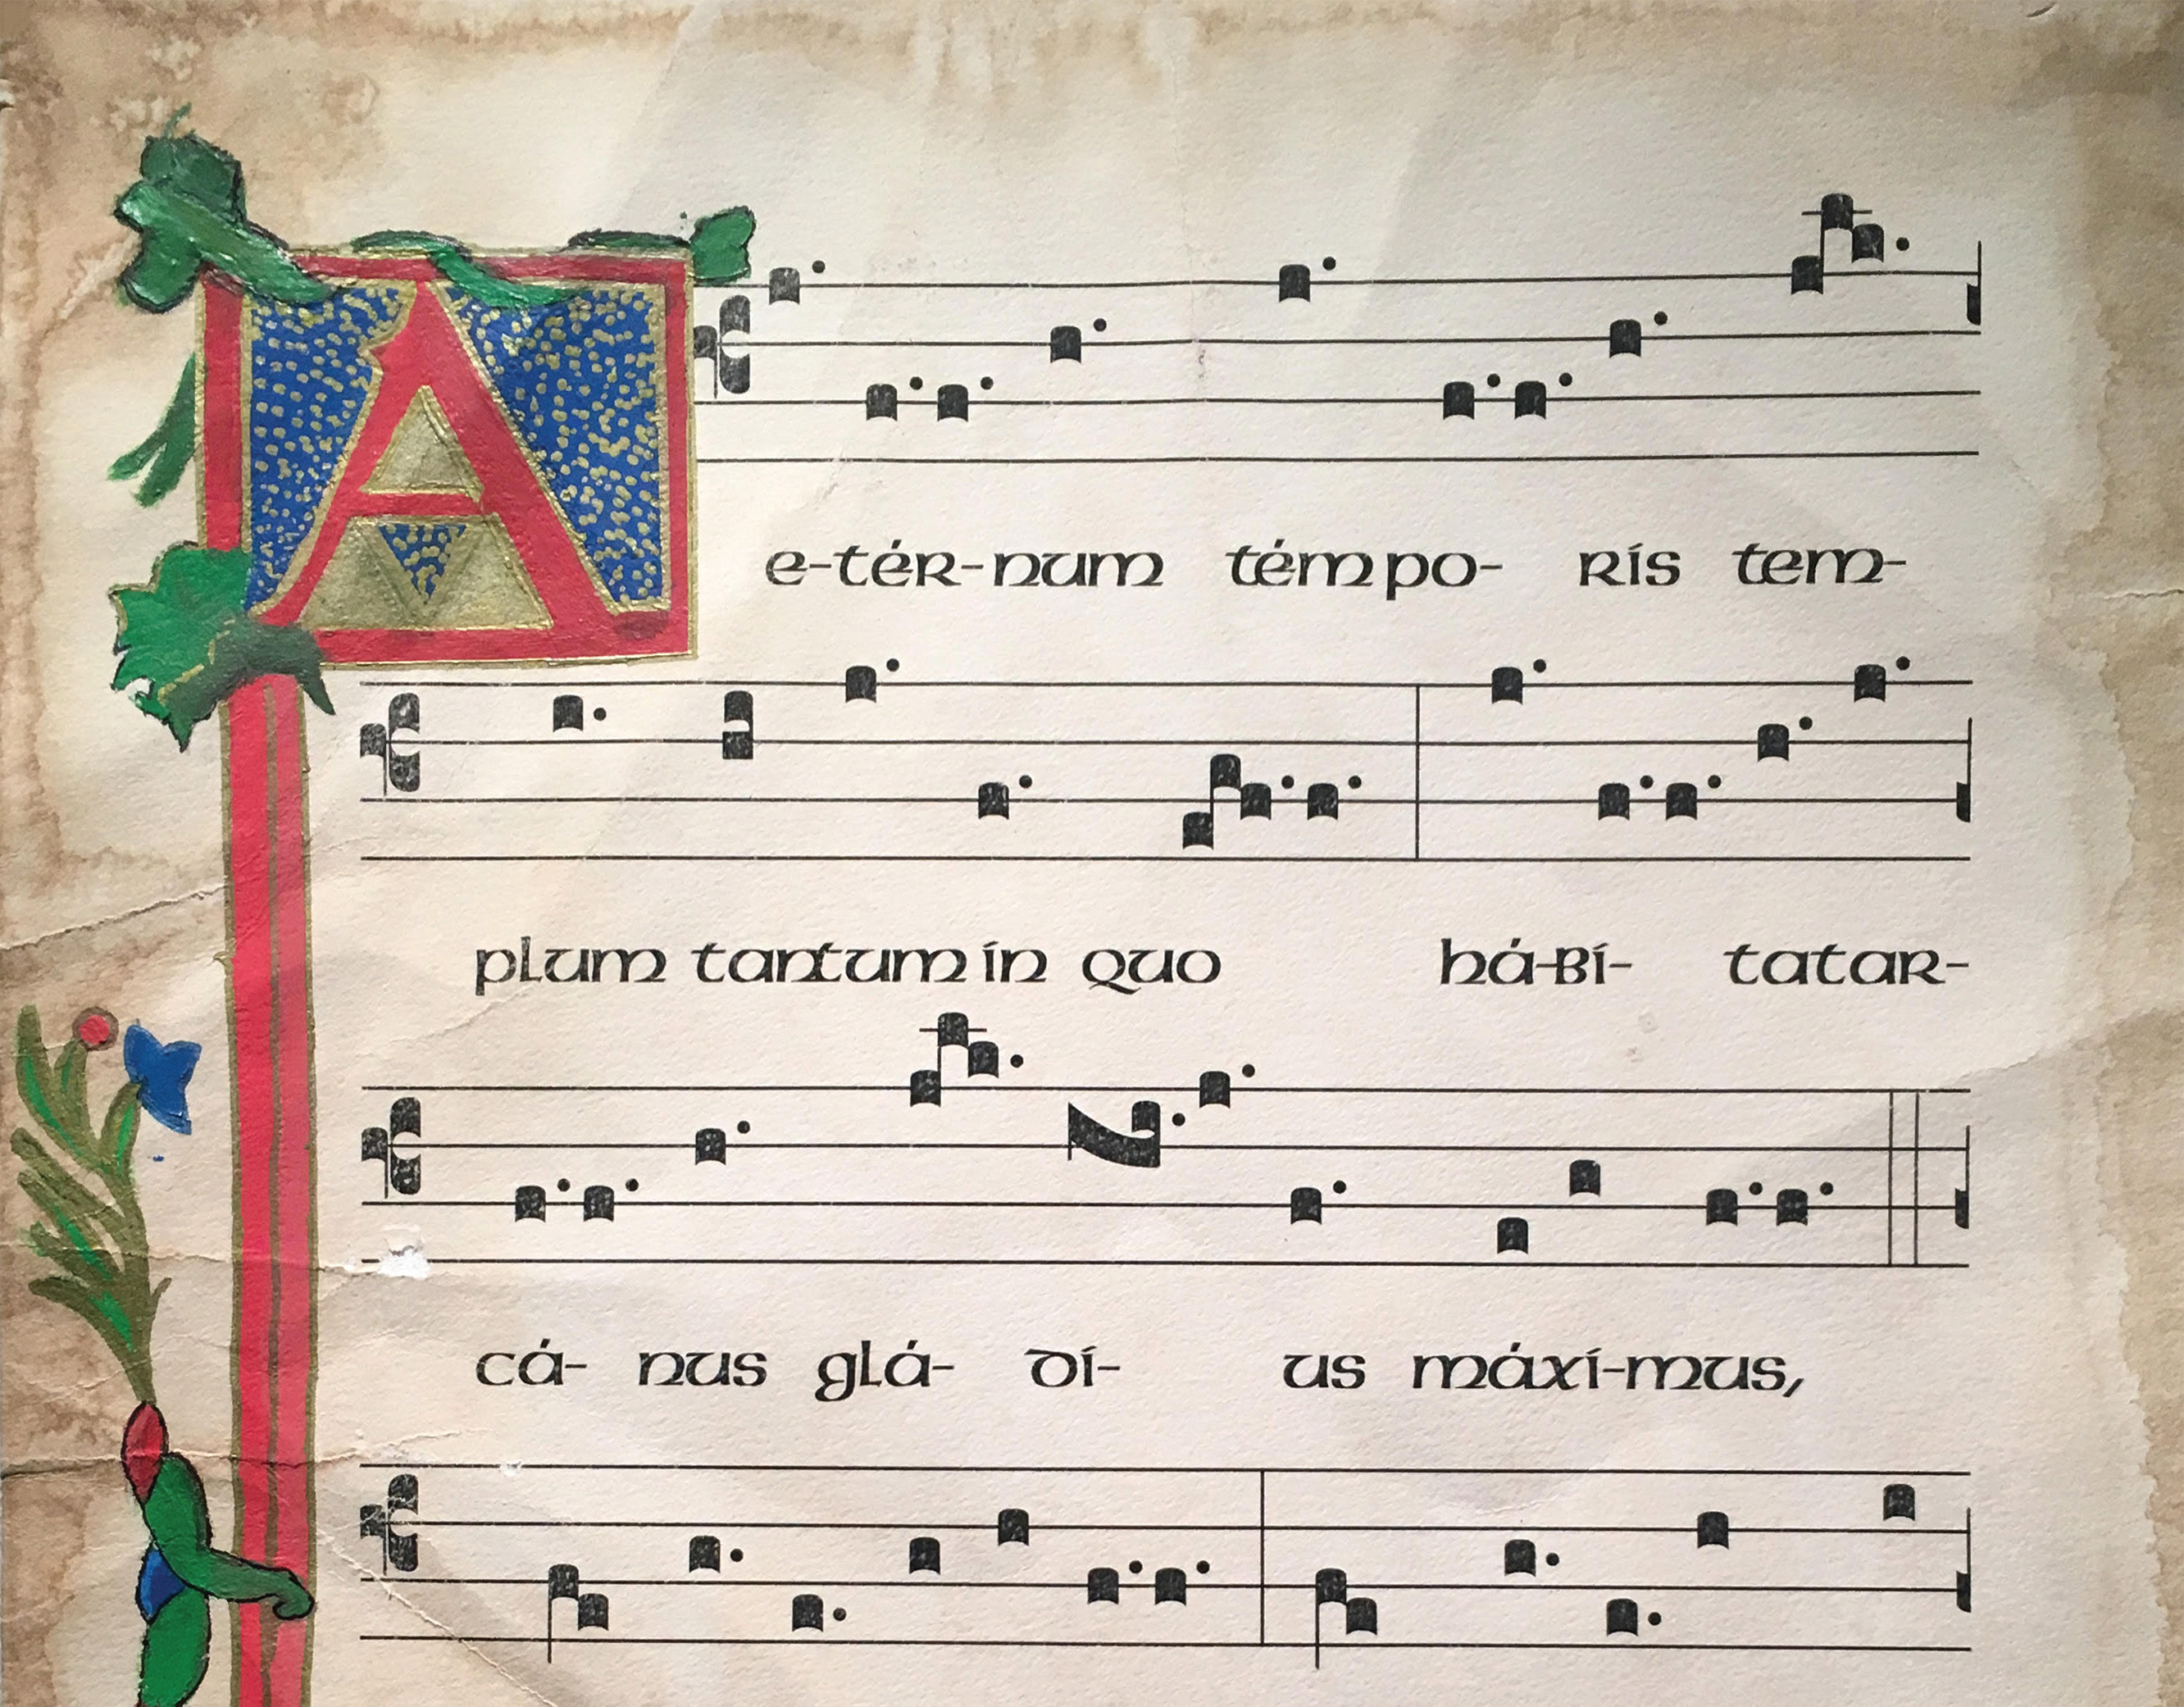 Ae-tér-num témpo- rís tem-
plum tantum ín quo há-bí- tatar-
cá- nus glá- dí- us máxí-mus,